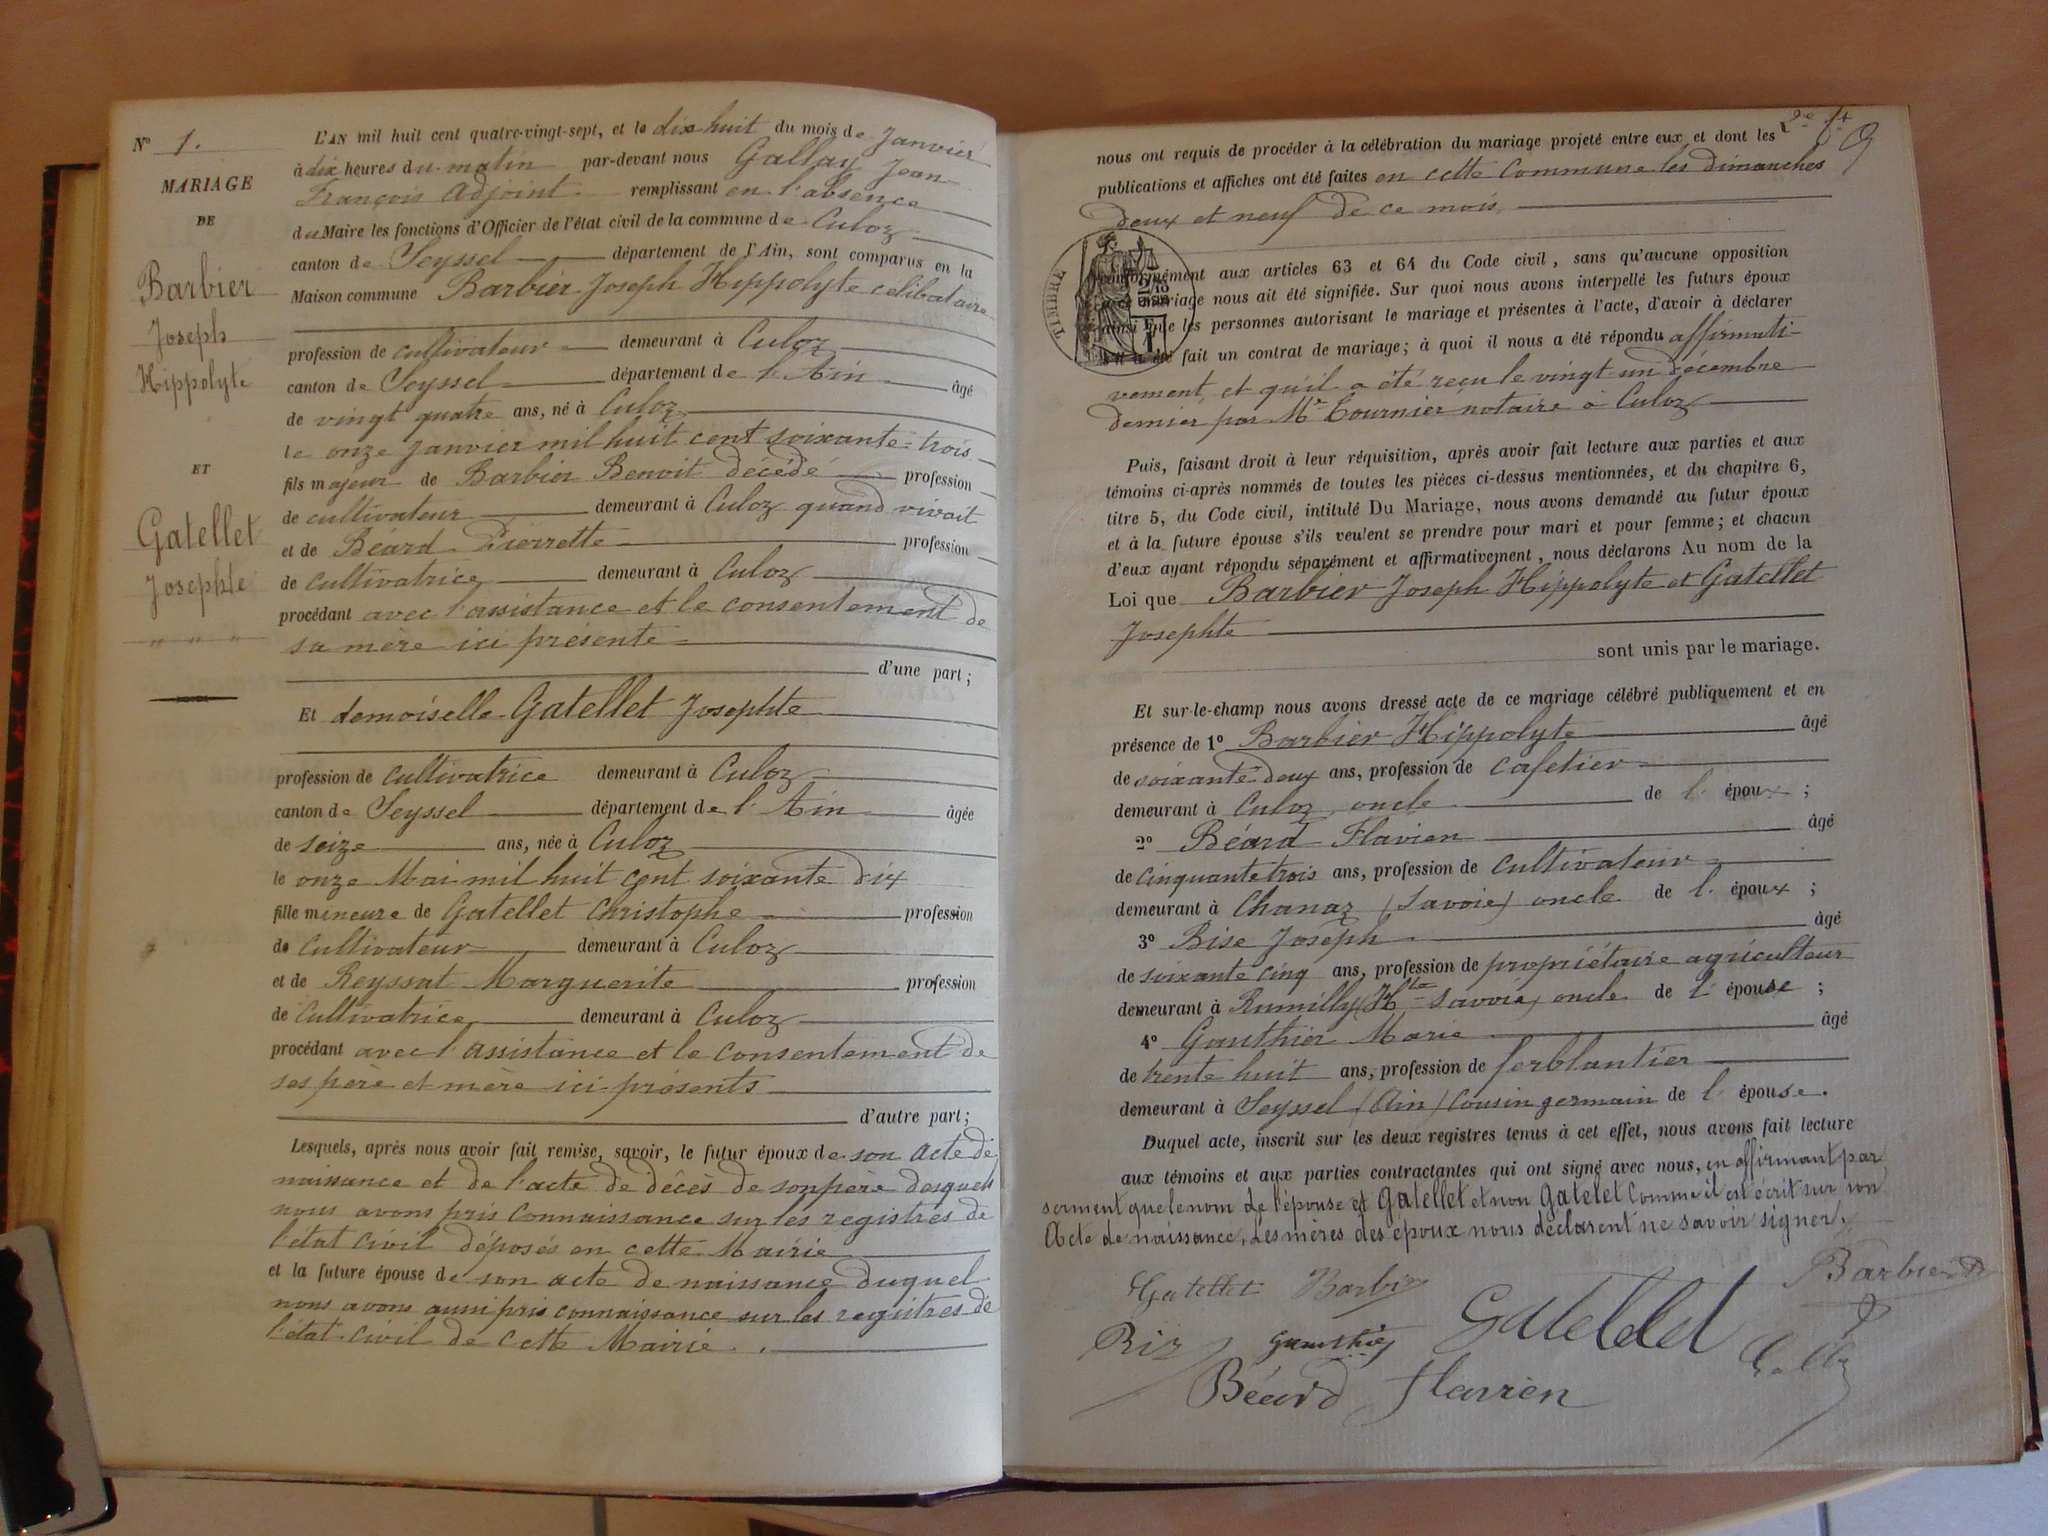 N° 1.
MARIAGE
DE
Barbier
Joseph
Hippolyte
ET
Gatellet
Josephte
" " "
L'AN mil huit cent quatre-vingt-sept, et le dix huit du mois de Janvier
à dix heures du matin par-devant nous Gallay Jean
François adjoint remplissant en l'absence
du Maire les fonctions d'Officier de l'état civil de la commune de Culoz
canton de Seyssel département de l'Ain, sont comparus en la
Maison commune Barbier Joseph Hippolyte célibataire
profession de cultivateur demeurant à Culoz
canton de Seyssel département de l'Ain âgé
de vingt quatre ans, né à Culoz
le onze janvier mil huit cent soixante-trois
fils majeur de Barbier Benoit décédé profession
de cultivateur demeurant à Culoz quand vivait
et de Beard Pierrette profession
de cultivatrice demeurant à Culoz
procédant avec l'assistance et le consentement de
sa mère ici présente
d'une part;
Et demoiselle Gatellet Josephte
profession de cultivatrice demeurant à Culoz
canton de Seyssel département de l'Ain âgée
de seize ans, née à Culoz
le onze Mai mil huit cent soixante dix
fille mineure de Gatellet Christophe profession
de cultivateur demeurant à Culoz
et de Reyssat Marguerite profession
de Cultivatrice demeurant à Culoz
procédant avec l'assistance et le consentement de
ses père et mère ici présents
d'autre part;
Lesquels, après nous avoir fait remise, savoir, le futur époux de son acte de
naissance et de l'acte de décès de son père desquels
nous avons pris connaissance sur les registres de
l'état civil déposés en cette Mairie
et la future épouse de son acte de naissance duquel
nous avons aussi pris connaissance sur les registres de
l'état-civil de cette Mairie.
nous ont requis de procéder à la célébration du mariage projeté entre eux et dont les
publications et affiches ont été faites en cette Commune les dimanches
deux et neuf de ce mois
TIMBRE
conformément aux articles 63 et 64 du Code civil, sans qu'aucune opposition
à ce mariage nous ait été signifiée. Sur quoi nous avons interpellé les futurs époux
ainsi que les personnes autorisant le mariage et présentes à l'acte, d'avoir à déclarer
s'il a été fait un contrat de mariage; à quoi il nous a été répondu affirmati-
vement, et qu'il a été reçu le vingt-un décembre
dernier par Me Tournier notaire à Culoz
Puis, faisant droit à leur réquisition, après avoir fait lecture aux parties et aux
témoins ci-après nommés de toutes les pièces ci-dessus mentionnées, et du chapitre 6,
titre 5, du Code civil, intitulé Du Mariage, nous avons demandé au futur époux
et à la future épouse s'ils veulent se prendre pour mari et pour femme; et chacun
d'eux ayant répondu séparément et affirmativement, nous déclarons Au nom de la
Loi que Barbier Joseph Hippolyte et Gatellet
Josephte
sont unis par le mariage.
Et sur-le-champ nous avons dressé acte de ce mariage célébré publiquement et en
présence de 1° Barbier Hippolyte âgé
de soixante-deux ans, profession de cafetier
demeurant à Culoz, oncle de l'époux;
2° Béard Flavien âgé
de cinquante trois ans, profession de cultivateur
demeurant à Chanaz (Savoie) oncle de l'époux;
3° Rise Joseph âgé
de soixante cinq ans, profession de propriétaire agriculteur
demeurant à Rumilly (Hte Savoie) oncle de l'épouse;
4° Gauthier Marie âgé
de trente huit ans, profession de ferblantier
demeurant à Seyssel (Ain) cousin germain de l'épouse.
Duquel acte, inscrit sur les deux registres tenus à cet effet, nous avons fait lecture
aux témoins et aux parties contractantes qui ont signé avec nous, en affirmant par
serment que le nom de l'épouse est Gatellet et non Gatelet comme il est écrit sur son
Acte de naissance, Les mères des époux nous déclarent ne savoir signer.
Gatellet Barbier Barbier
Riz Gauthier Gatellet
Béard Flavien